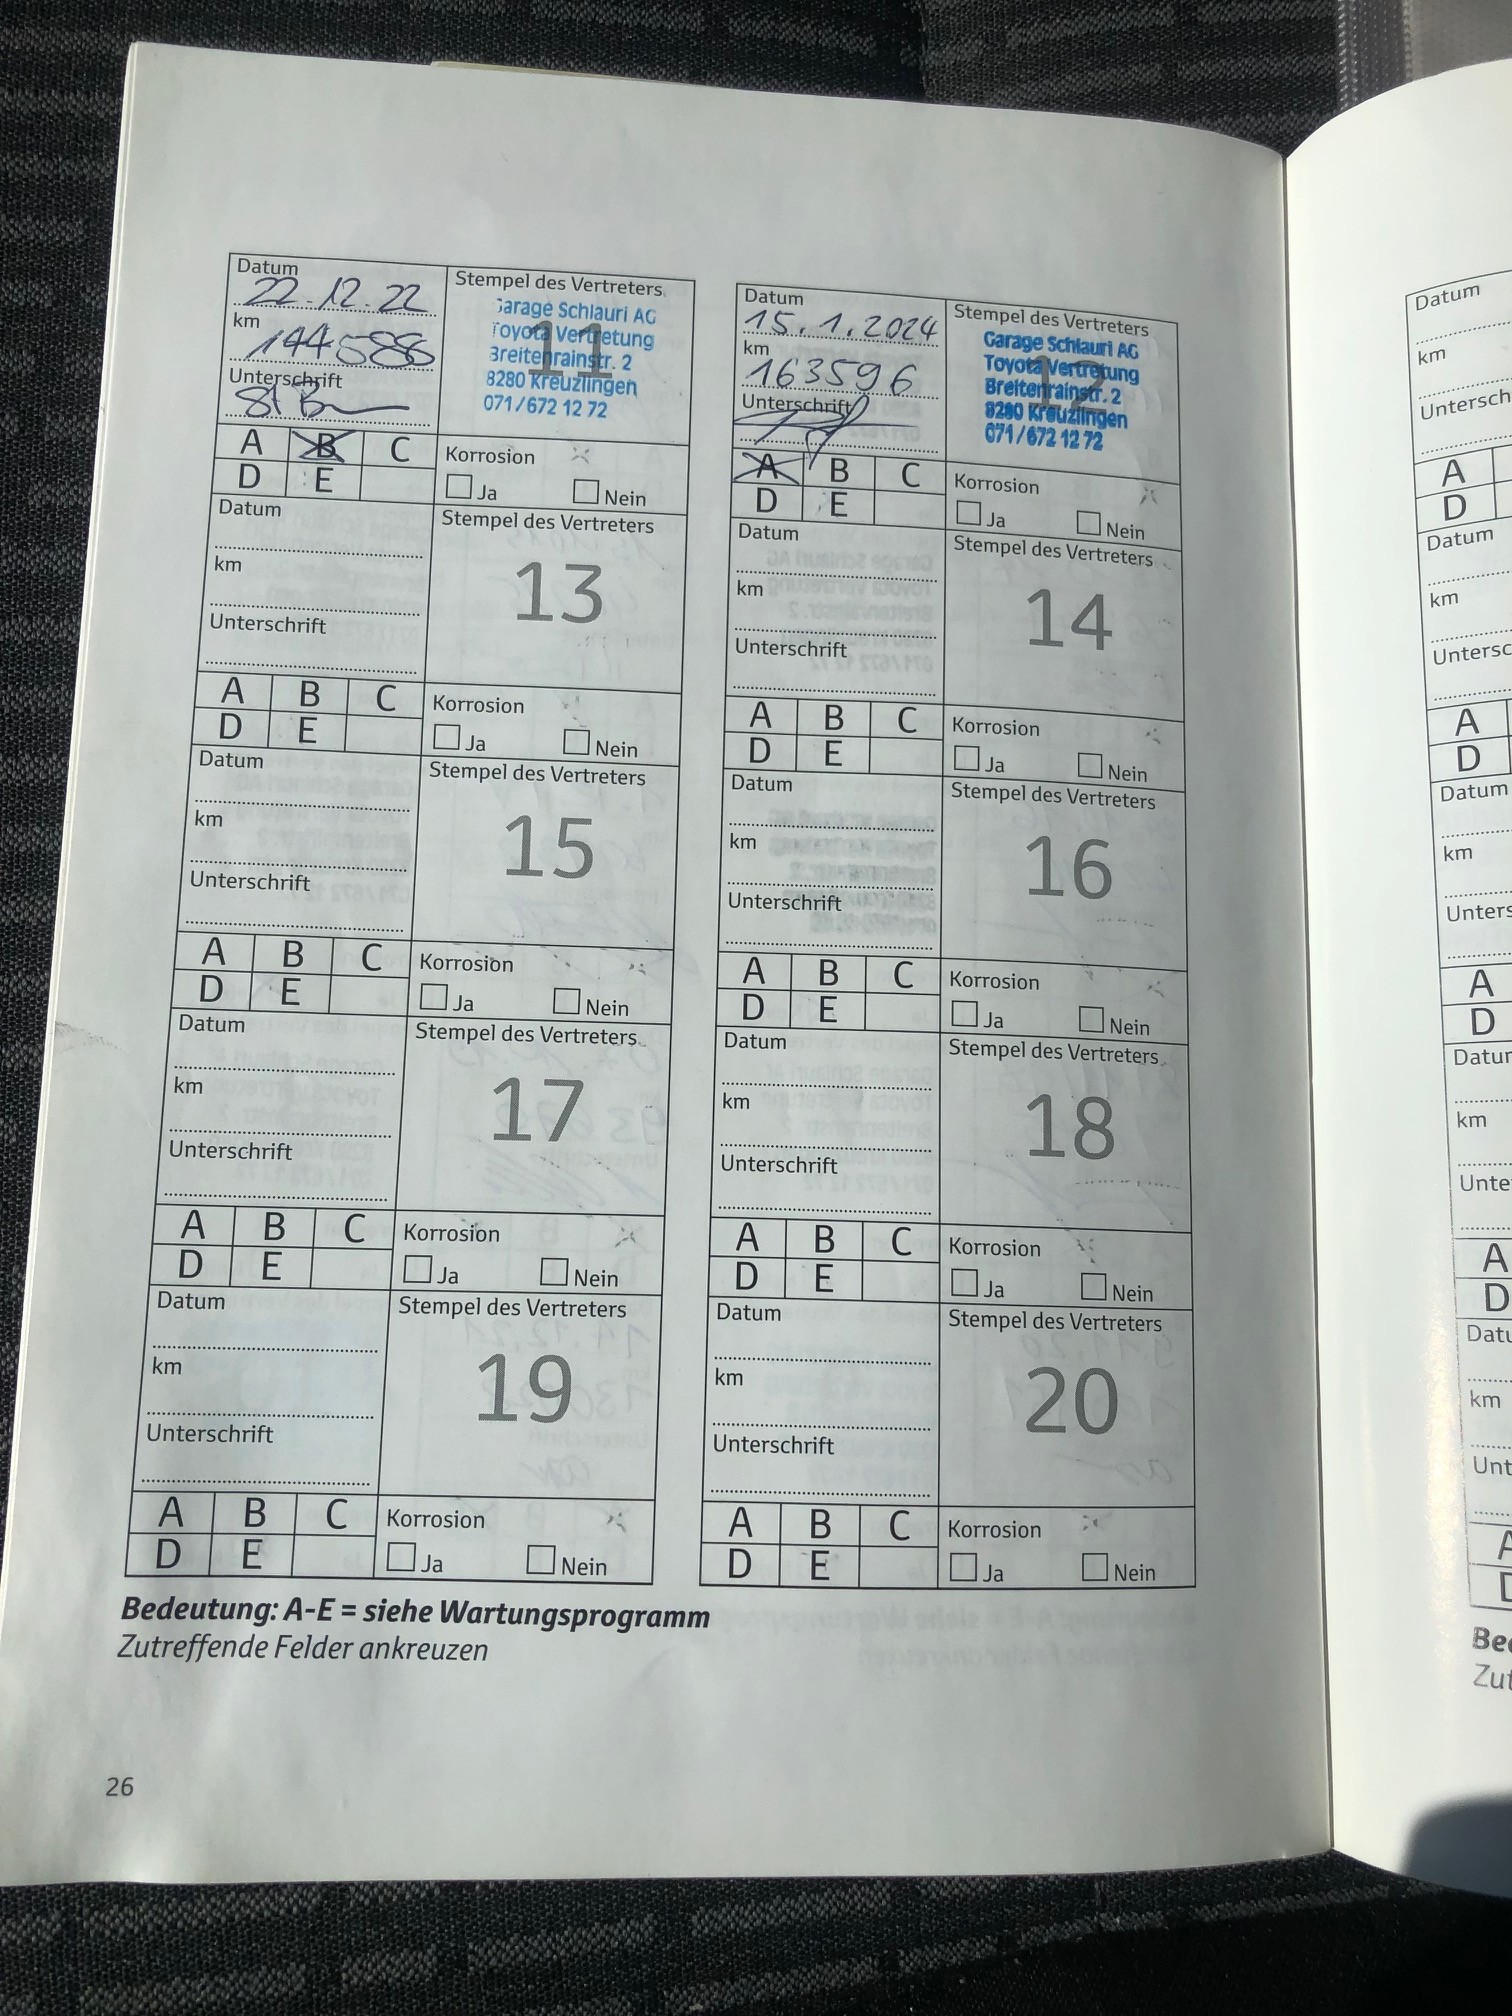 Datum
22.12.22
km
144588
Unterschrift
Stempel des Vertreters
11
Garage Schlauri AG
Toyota Vertretung
Breitenrainstr. 2
8280 Kreuzlingen
071/672 12 72
A B C
D E
Korrosion
Ja Nein
Datum
15.1.2024
km
163596
Unterschrift
Stempel des Vertreters
12
Garage Schlauri AG
Toyota Vertretung
Breitenrainstr. 2
8280 Kreuzlingen
071/672 12 72
A B C
D E
Korrosion
Ja Nein
Datum
km
Unterschrift
Stempel des Vertreters
13
A B C
D E
Korrosion
Ja Nein
Datum
km
Unterschrift
Stempel des Vertreters
14
A B C
D E
Korrosion
Ja Nein
Datum
km
Unterschrift
Stempel des Vertreters
15
A B C
D E
Korrosion
Ja Nein
Datum
km
Unterschrift
Stempel des Vertreters
16
A B C
D E
Korrosion
Ja Nein
Datum
km
Unterschrift
Stempel des Vertreters
17
A B C
D E
Korrosion
Ja Nein
Datum
km
Unterschrift
Stempel des Vertreters
18
A B C
D E
Korrosion
Ja Nein
Datum
km
Unterschrift
Stempel des Vertreters
19
A B C
D E
Korrosion
Ja Nein
Datum
km
Unterschrift
Stempel des Vertreters
20
A B C
D E
Korrosion
Ja Nein
Bedeutung: A-E = siehe Wartungsprogramm
Zutreffende Felder ankreuzen
26
Datum
km
A
D
Datum
km
A
D
Datum
km
A
D
km
A
D
km